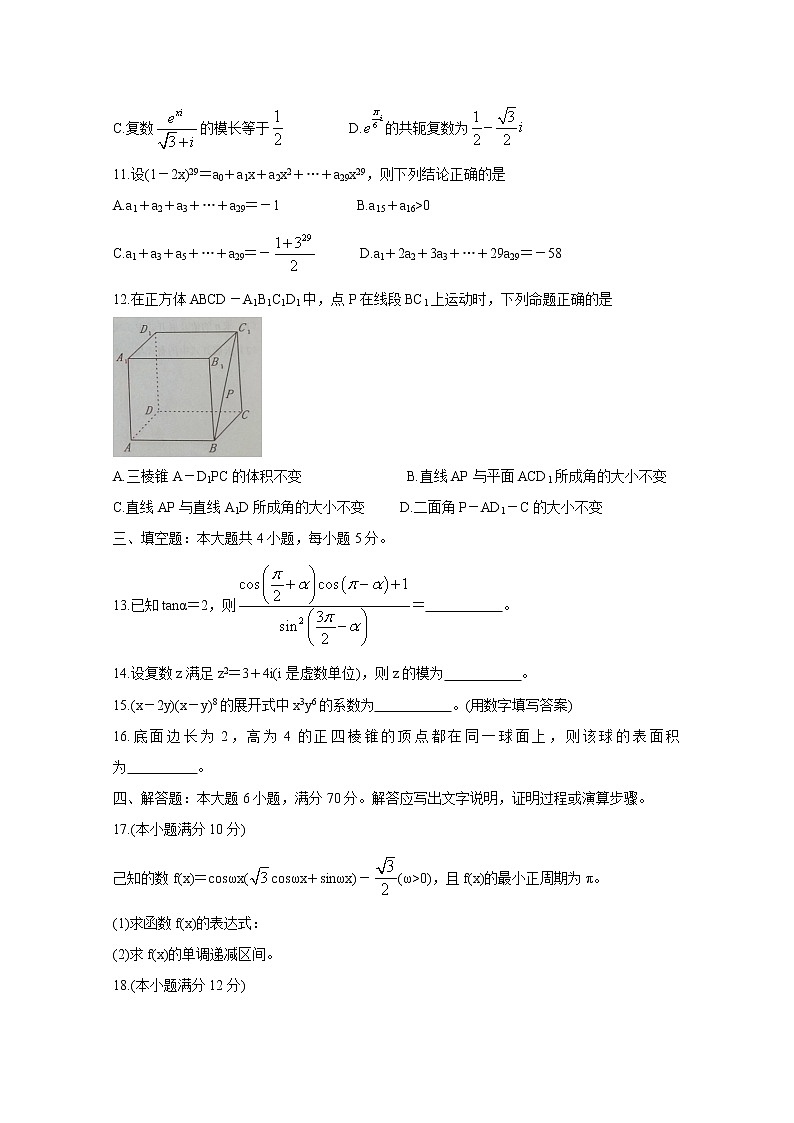 C.复数 e^{πi}/(√3+i) 的模长等于 1/2 D. e^{(π/6)i} 的共轭复数为 1/2－(√3/2)i
11.设(1－2x)²⁹＝a₀＋a₁x＋a₂x²＋…＋a₂₉x²⁹，则下列结论正确的是
A.a₁＋a₂＋a₃＋…＋a₂₉＝－1 B.a₁₅＋a₁₆>0
C.a₁＋a₃＋a₅＋…＋a₂₉＝－(1+3²⁹)/2 D.a₁＋2a₂＋3a₃＋…＋29a₂₉＝－58
12.在正方体ABCD－A₁B₁C₁D₁中，点P在线段BC₁上运动时，下列命题正确的是
D₁ C₁
A₁ B₁
P
D C
A B
A.三棱锥A－D₁PC的体积不变 B.直线AP与平面ACD₁所成角的大小不变
C.直线AP与直线A₁D所成角的大小不变 D.二面角P－AD₁－C的大小不变
三、填空题：本大题共4小题，每小题5分。
13.已知tanα＝2，则 [cos(π/2+α)cos(π−α)+1]/sin²(3π/2−α)＝___________。
14.设复数z满足z²＝3＋4i(i是虚数单位)，则z的模为___________。
15.(x－2y)(x－y)⁸的展开式中x³y⁶的系数为___________。(用数字填写答案)
16.底面边长为2，高为4的正四棱锥的顶点都在同一球面上，则该球的表面积
为__________。
四、解答题：本大题6小题，满分70分。解答应写出文字说明，证明过程或演算步骤。
17.(本小题满分10分)
己知的数f(x)＝cosωx(√3cosωx＋sinωx)－√3/2(ω>0)，且f(x)的最小正周期为π。
(1)求函数f(x)的表达式：
(2)求f(x)的单调递减区间。
18.(本小题满分12分)